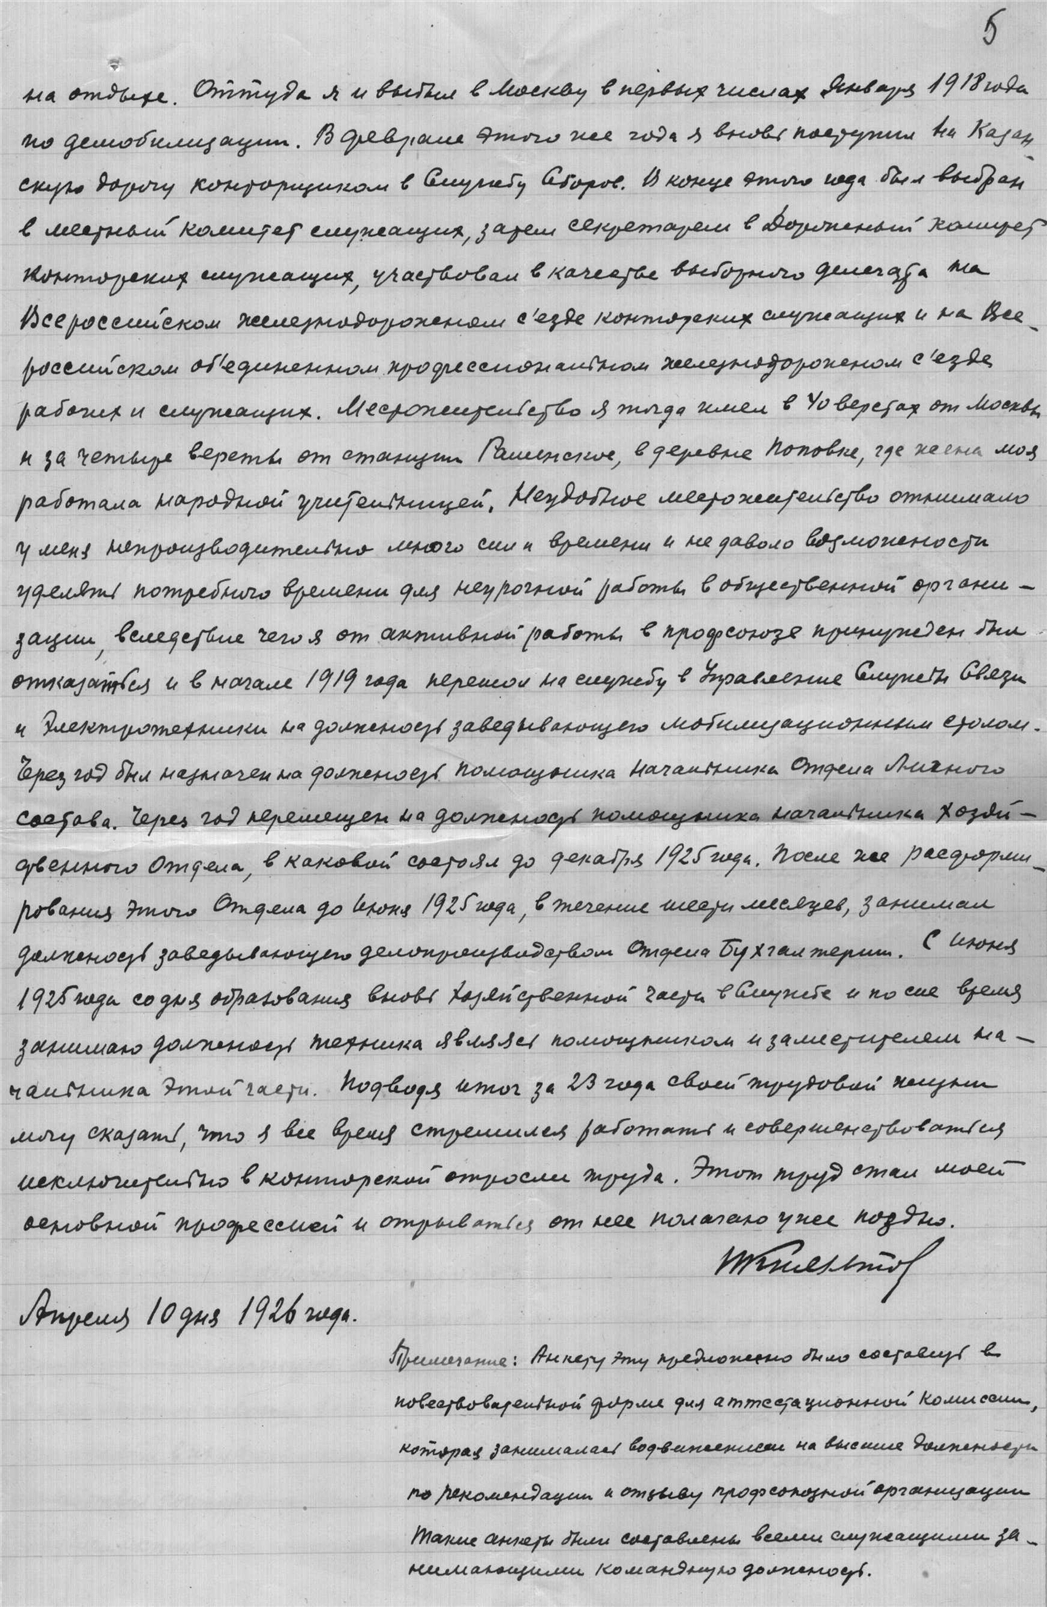 5
на отдыхе. Оттуда я и выбыл в Москву в первых числах Января 1918 года
по демобилизации. В феврале этого же года я вновь поступил на Казан
скую дорогу конторщиком в Службу Сборов. В конце этого года был выбран
в местный комитет служащих, затем секретарем в Дорожный комитет
конторских служащих, участвовал в качестве выборного делегата на
Всероссийском железнодорожном с'езде конторских служащих и на Все-
российском об'единенном профессиональном железнодорожном с'езде
рабочих и служащих. Местожительство я тогда имел в 40 верстах от Москвы
и за четыре версты от станции Раменское, в деревне Поповке, где жена моя
работала народной учительницей. Неудобное местожительство отнимало
у меня непроизводительно много сил и времени и не давало возможности
уделять потребного времени для неурочной работы в общественной органи-
зации, вследствие чего я от активной работы в профсоюзе принужден был
отказаться и в начале 1919 года перешол на службу в Управление Службы Связи
и Электротехники на должность заведывающего мобилизационным столом.
Через год был назначен на должность помощника начальника Отдела Личного
состава. Через год перемещен на должность помощника начальника Хозяй-
ственного Отдела, в каковой состоял до декабря 1925 года. После же расформи-
рования этого Отдела до Июня 1925 года, в течение шести месяцев, занимал
должность заведывающего делопроизводством Отдела Бухгалтерии. С Июня
1925 года со дня образования вновь Хозяйственной части в Службе и по сие время
занимаю должность техника являясь помощником и заместителем на-
чальника этой части. Подводя итог за 23 года своей трудовой жизни
могу сказать, что я все время стремился работать и совершенствоваться
исключительно в конторской отросли труда. Этот труд стал моей
основной профессией и отрываться от нее полагаю уже поздно.
Апреля 10 дня 1926 года.
Примечание: Анкету эту предложено было составить в
повествовательной форме для аттестационной Комиссии,
которая занималась водвижением на высшие должности
по рекомендации и отзыву профсоюзной организации
Такие анкеты были составлены всеми служащими за-
нимающими командную должность.